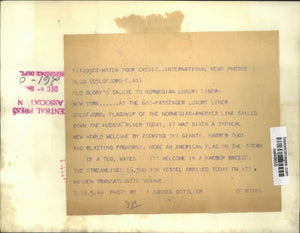 WATCH YOUR CREDIT...INTERNATIONAL NEWS PHOTOS
SLUG (OSLOFJORD-FLAG)
OLD GLORY'S SALUTE TO NORWEGIAN LUXURY LINER
NEW YORK.....AS THE 650-PASSENGER LUXURY LINER
OSLOFJORD, FLAGSHIP OF THE NORWEGIAN-AMERICA LINE SAILED
DOWN THE HUDSON RIVER TODAY, IT WAS GIVEN A TYPICAL
NEW WORLD WELCOME BY ZOOMING SKY GIANTS, HARBOR TUGS
AND BLASTING FOGHORNS. HERE AN AMERICAN FLAG ON THE STERN
OF A TUG, WAVES ITS WELCOME IN A HARBOR BREEZE.
THE STREAMLINED 16,500 TON VESSEL ARRIVED TODAY ON ITS
MAIDEN TRANSATLANTIC VOYAGE.
PHOTO BY GOTTLIEB
DEC
REFERENCE DEPT.
CENTRAL PRESS
ASSOCIATION